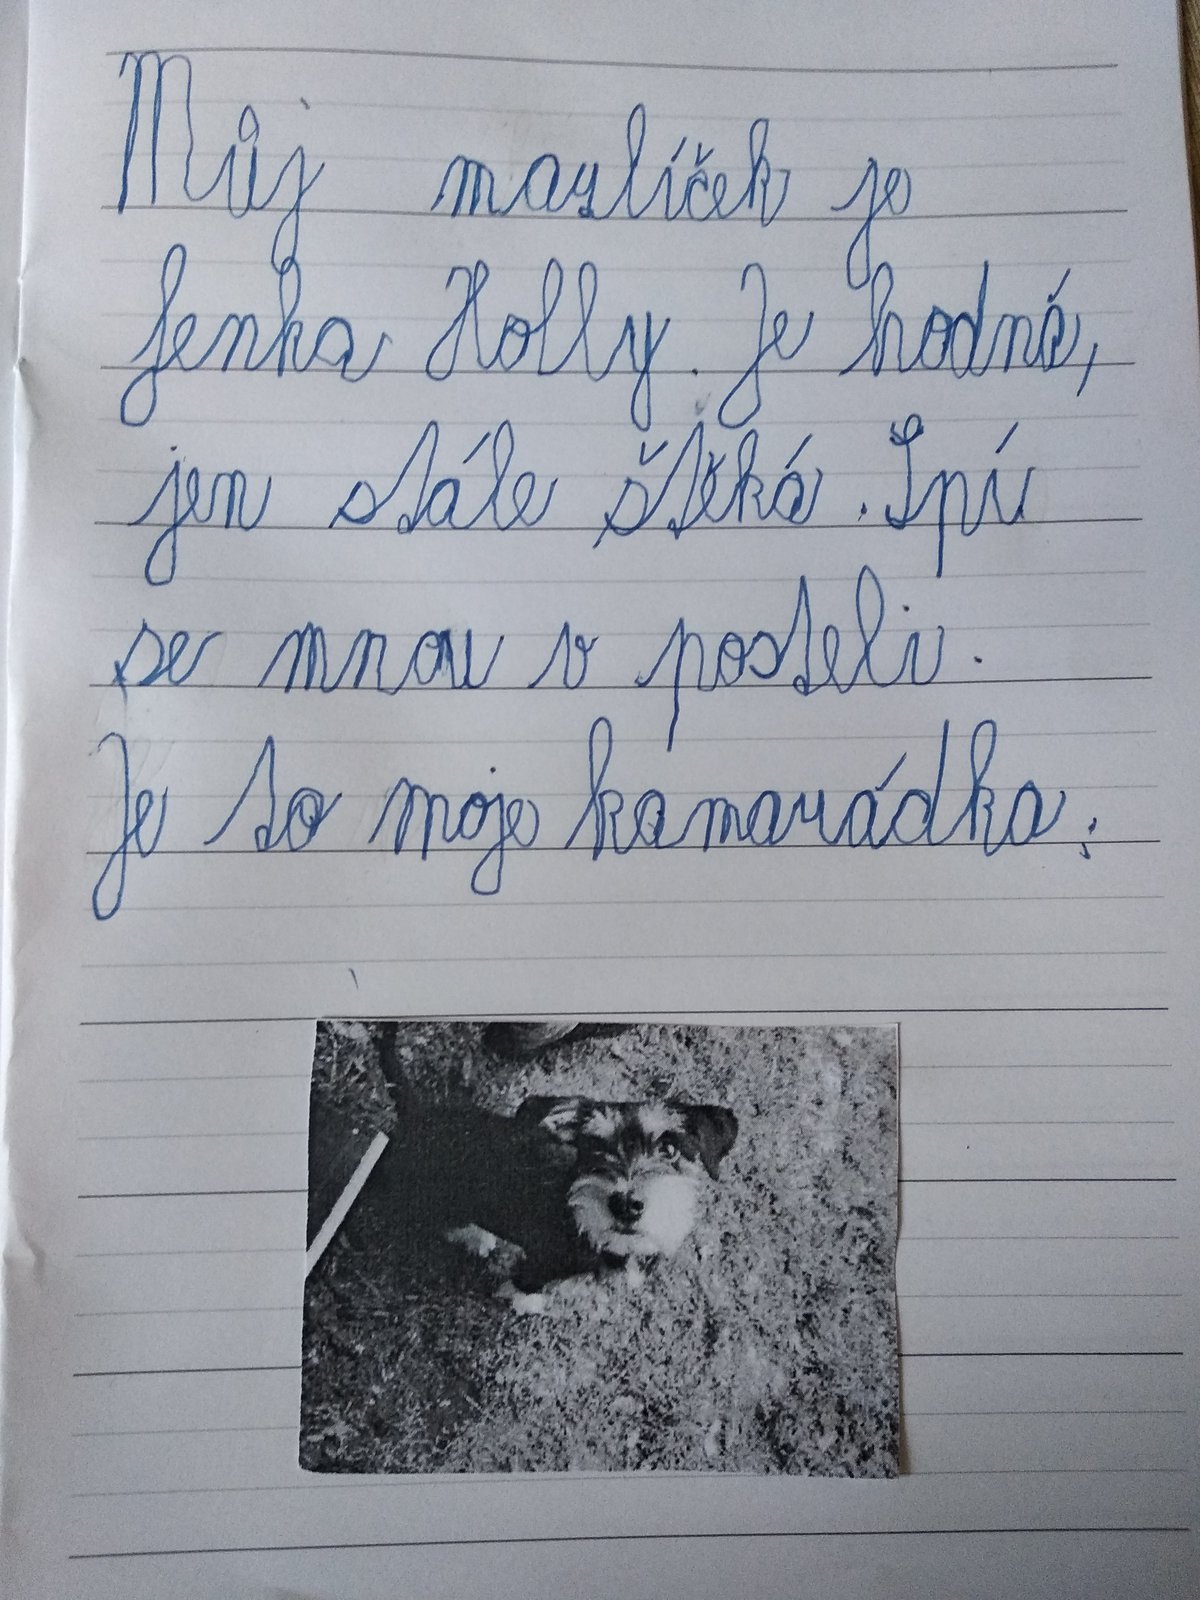 Můj mazlíček je
fenka Holly. Je hodná,
jen stále štěká. Spí
se mnou v posteli.
Je to moje kamarádka.